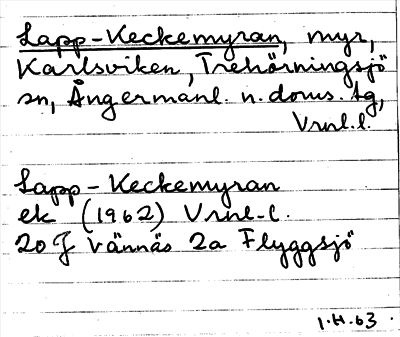 Lapp-Keckemyran, myr,
Karlsviken, Trehörningsjö
sn, Ångermanl. n. doms. tg,
Vrnl. l.
Lapp-Keckemyran
ek (1962) Vrnl-l.
20 J Vännäs 2a Flyggsjö
1.H.63